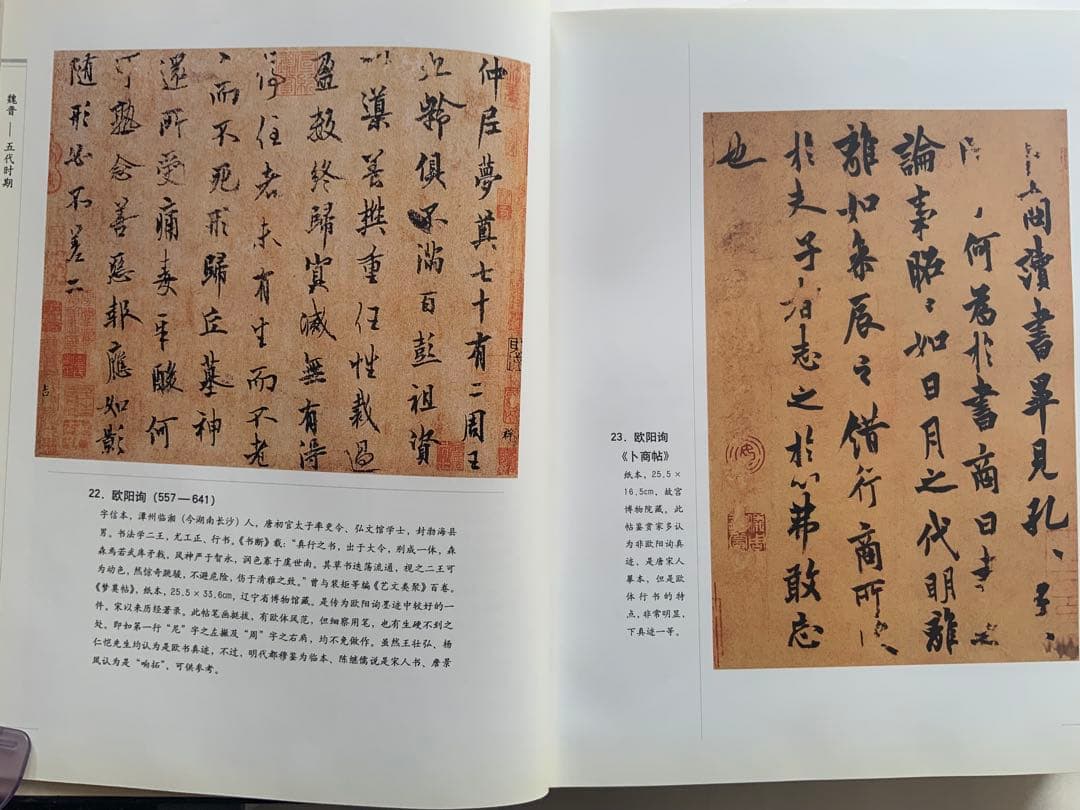 魏晋——五代时期
仲尼夢奠七十有二周王
九齡俱不滿百彭祖資
以導養樊重任性裁過
盈數終歸冥滅無有得
停住者未有生而不老
而不死形歸丘墓神
還所受痛毒辛酸何
可熟念善惡報應如影
隨形必不差二
22. 欧阳询(557—641)
字信本,潭州临湘(今湖南长沙)人,唐初官太子率更令、弘文馆学士,封渤海县
男。书法学二王,尤工正、行书。《书断》载:“真行之书,出于大令,别成一体,森
森焉若武库矛戟,风神严于智永,润色寡于虞世南。其草书迭荡流通,视之二王可
为动色,然惊奇跳骏,不避危险,伤于清雅之致。”曾与裴矩等编《艺文类聚》百卷。
《梦奠帖》,纸本,25.5×33.6cm,辽宁省博物馆藏。是传为欧阳询墨迹中较好的一
件。宋以来历经著录。此帖笔画挺拔,有欧体风范,但细察用笔,也有生硬不到之
处。即如第一行“尼”字之左撇及“周”字之右肩,均不免做作。虽然王壮弘、杨
仁恺先生均认为是欧书真迹,不过,明代都穆鉴为临本、陈继儒说是宋人书、唐景
凤认为是“响拓”,可供参考。
商讀書畢見孔、子、
何為於書商曰書
論事昭〻如日月之代明離
離如參辰之錯行商所
於夫子者志之於心弗敢忘
也
23. 欧阳询
《卜商帖》
纸本,25.5×
16.5cm,故宫
博物院藏。此
帖鉴赏家多认
为非欧阳询真
迹,是唐宋人
摹本,但是欧
体行书的特
点,非常明显,
下真迹一等。